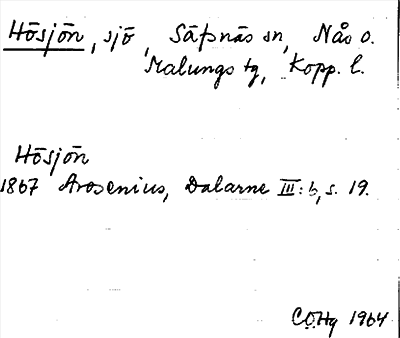 Hösjön, sjö, Säfsnäs sn, Nås o.
Malungs tg, Kopp. l.
Hösjön
1867 Arosenius, Dalarne III:b, s. 19.
COHg 1964